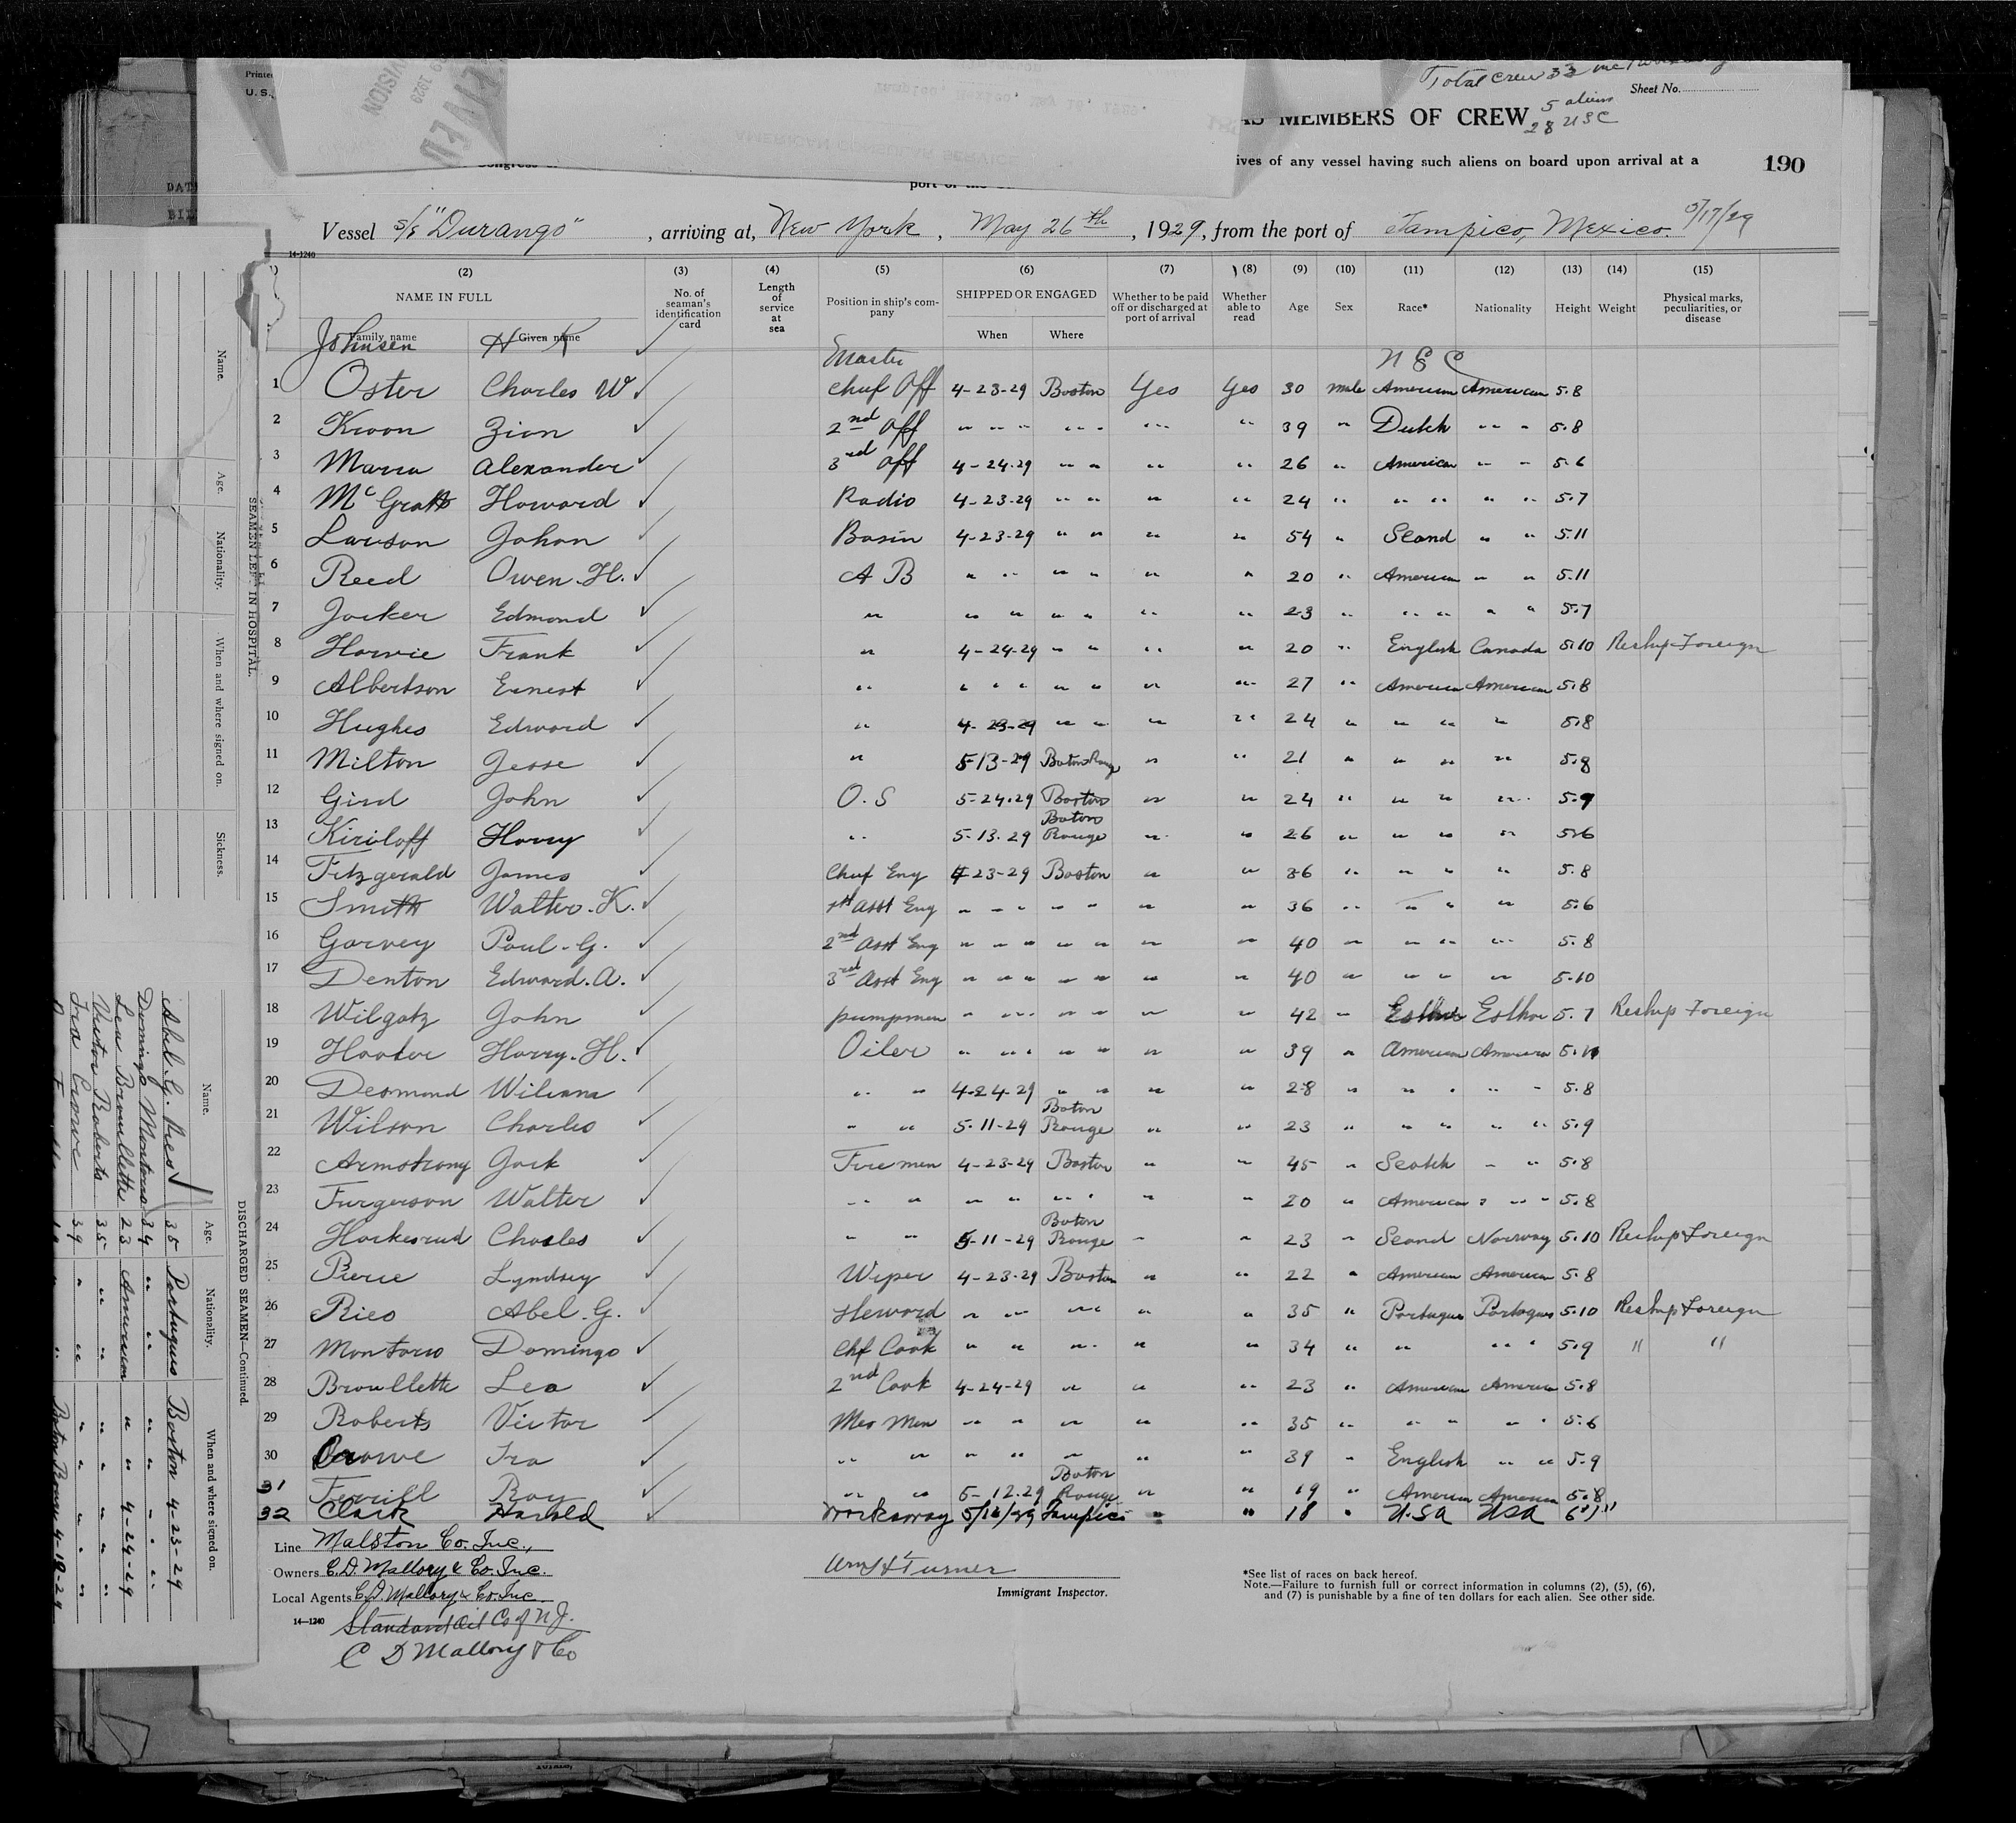 Total Crew 33 inc
5 aliens
28 USC
Sheet No.
AS MEMBERS OF CREW
ives of any vessel having such aliens on board upon arrival at a
190
Vessel S/S "Durango", arriving at, New York, May 26th, 1929, from the port of Tampico, Mexico. 5/17/29
14-1240
(2) (3) (4) (5) (6) (7) (8) (9) (10) (11) (12) (13) (14) (15)
NAME IN FULL No. of seaman's identification card Length of service at sea Position in ship's company SHIPPED OR ENGAGED Whether to be paid off or discharged at port of arrival Whether able to read Age Sex Race* Nationality Height Weight Physical marks, peculiarities, or disease
Family name Given name When Where
Johnsen H K Master
1 Oster Charles W Chief Off 4-23-29 Boston Yes Yes 30 male American American 5.8
2 Kroon Zion 2nd Off " " " " " " 39 " Dutch " " 5.8
3 Marra Alexander 3rd Off 4-24-29 " " " " 26 " American " " 5.6
4 McGrath Howard Radio 4-23-29 " " " " 24 " " " " " 5.7
5 Larson Johan Bosin 4-23-29 " " " " 54 " Scand " " 5.11
6 Reed Owen H. A B " " " " " " 20 " American " " 5.11
7 Jocker Edmond " " " " " " " 23 " " " " " 5.7
8 Harvie Frank " 4-24-29 " " " " 20 " English Canada 5.10 Reship Foreign
9 Albertson Ernest " " " " " " " " 27 " American American 5.8
10 Hughes Edward " 4-23-29 " " " " 24 " " " " 5.8
11 Milton Jesse " 5-13-29 Baton Rouge " " 21 " " " " 5.8
12 Gird John O.S 5-24-29 Boston " " 24 " " " " 5.9
13 Kiriloff Harry " 5-13-29 Baton Rouge " " 26 " " " " 5.6
14 Fitzgerald James Chief Eng 4-23-29 Boston " " 36 " " " " 5.8
15 Smith Walter K. 1st Asst Eng " " " " " " " 36 " " " " 5.6
16 Garvey Paul G. 2nd Asst Eng " " " " " " " 40 " " " " 5.8
17 Denton Edward A. 3rd Asst Eng " " " " " " " 40 " " " " 5.10
18 Wilgatz John pumpman " " " " " " 42 " Esthor Esthor 5.7 Reship Foreign
19 Harry H. Oiler " " " " " " 39 " American American
20 Desmond " " 4-24-29 " " " " 28 " " " " " 5.8
21 Wilson Charles " " 5-11-29 Baton Rouge " " 23 " " " " " 5.9
22 Armstrong Jack Firemen 4-23-29 Boston " " 45 " Scotch " " 5.8
23 Furgerson Walter " " " " " " " " 20 " American " " " 5.8
24 Charles " " 5-11-29 Baton Rouge " " 23 " Scand Norway 5.10 Reship Foreign
25 Pierce Lyndsey Wiper 4-23-29 Boston " " 22 " American American 5.8
26 Ries Abel G. Steward " " " " " 35 " Portugues Portugues 5.10 Reship Foreign
27 Domingo Chf Cook " " " " " 34 " " " " 5.9 " "
28 Broullette Leo 2nd Cook 4-24-29 " " " 23 " American American 5.8
29 Roberts Victor Mess Men " " " " " 35 " " " " " 5.6
30 Crowe Ira " " " " " " " 39 " English " " 5.9
31 Ferrill Roy " " 5-12-29 Baton Rouge " " 19 " American American 5.8
32 Clark Harold Workaway Tampico " " 18 " U.S.A USA 6'1"
Line Malston Co. Inc.,
Owners C.D. Mallory & Co. Inc.
Local Agents C.D. Mallory & Co. Inc.
14-1240 Standard Oil Co of N.J.
C D Mallory & Co
Wm H Turner
Immigrant Inspector.
*See list of races on back hereof.
Note.—Failure to furnish full or correct information in columns (2), (5), (6),
and (7) is punishable by a fine of ten dollars for each alien. See other side.
SEAMEN LEFT IN HOSPITAL.
Name. Age. Nationality. When and where signed on. Sickness.
DISCHARGED SEAMEN—Continued.
Name. Age. Nationality. When and where signed on.
Abel G. Ries 35 Portugues Boston 4-23-29
Domingo 34 " " " " "
Leo Broullette 23 American " " 4-24-29
Victor Roberts 35 " " " " "
Ira Crowe 39 " " " " "